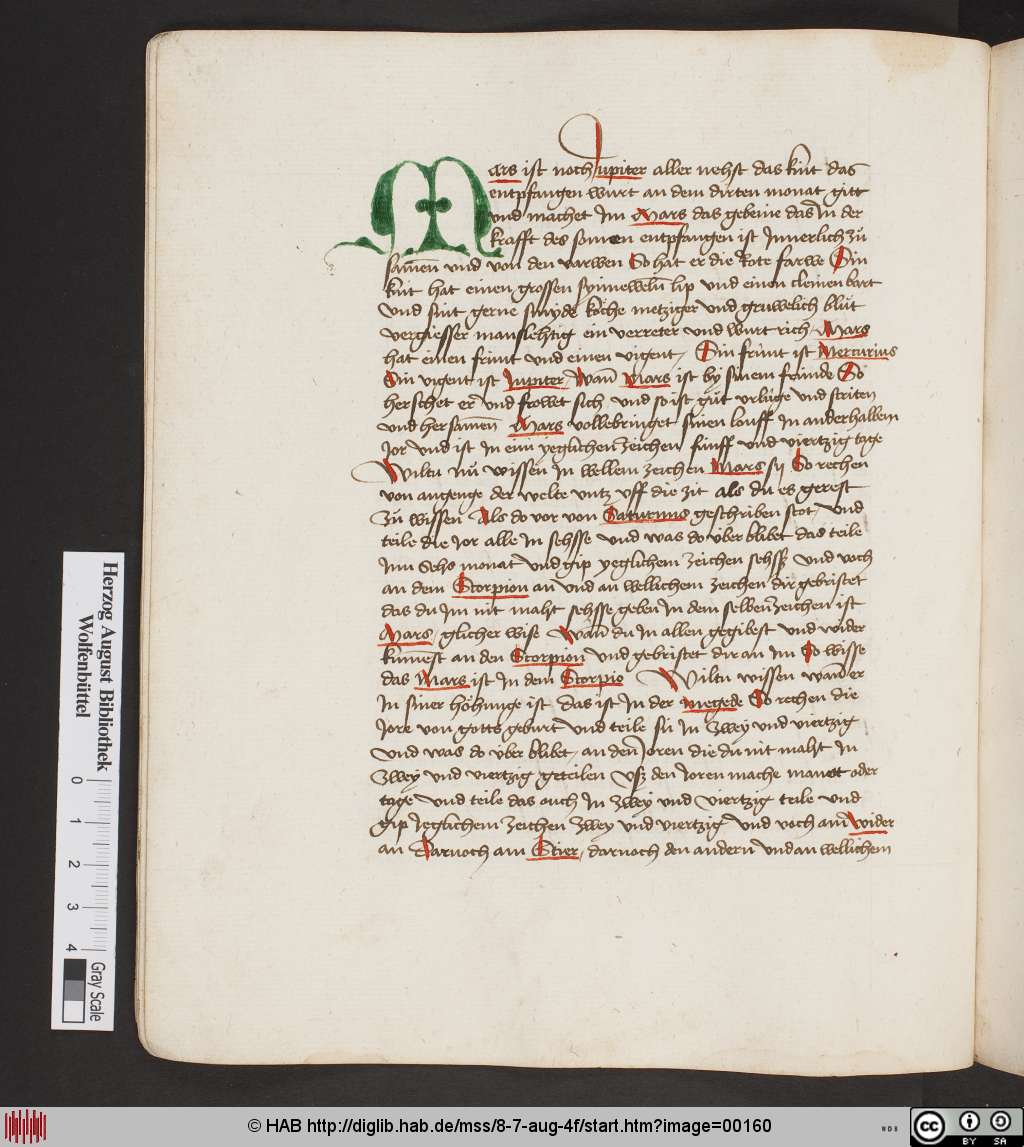 Mars ist noch Jupiter aller nehst das kint das
entpfangen wurt an dem dirten monat gitt
und machet Im Mars das gebeine das In der
krafft des somen entpfangen ist Innerlich zů
samēn vnd von den varwen So hat er die Rote farwe Sin
kint hat einen grossen synneweln lip und einen cleinen bart
vnd sint gerne smyde kőche metziger vnd gruwelich blůt
vergiesser manslehtig ein verreter und wurt rich Mars
hat einen frúnt vnd einen vigent / Sin frúnt ist Mercurius
Sin vigent ist Jupiter / Wañ Mars ist by sinem frúnde So
herschet er vnd frowet sich vnd so ist gůt vrlúge und striten
vnd her samēn Mars vollebringet sinen louff In anderhalbem
Jor vnd ist In eim yeglichen zeichen fúnff vnd viertzig tage
Wiltu nů wissen In wellem zeichen Mars sy So rechen
von angenge der welte vntz vff die zit als du es gerest
Zů wissen Als do vor von Saturnus geschriben stot vnd
teile die Jor alle In sehsse vnd was do über blibet das teile
Inn Sehs monat vnd gip yeglichem zeichen sehssz vnd voch
an dem Scorpion an vnd an wellichem zeichen dir gebristet
das du Im nit maht sehsse geben In dem selben zeichen ist
Mars / glicher wise Wañ du In allen gegibest vnd wider
kūmest an den Scorpion vnd gebristet dir an Im So wisse
das Mars ist In dem Scorpio Wiltu wissen wañ er
In siner hőhunge ist das ist In der megede So rechen die
Jore von gotts geburt vnd teile sú In zwey vnd viertzig
vnd was do über blibet / an den Joren die du nit maht In
Zwey vnd viertzig geteilen Vsz den Joren mache manott oder
tage vnd teile das ouch In zwey vnd viertzig teile vnd
gip Jeglichem zeichen zwey vnd viertzig vnd voch am wider
an Darnoch am Stier / darnoch den andern vnd an wellichem
Herzog August Bibliothek
Wolfenbüttel
0 1 2 3 4
Gray Scale
© HAB http://diglib.hab.de/mss/8-7-aug-4f/start.htm?image=00160
WDB
cc BY SA